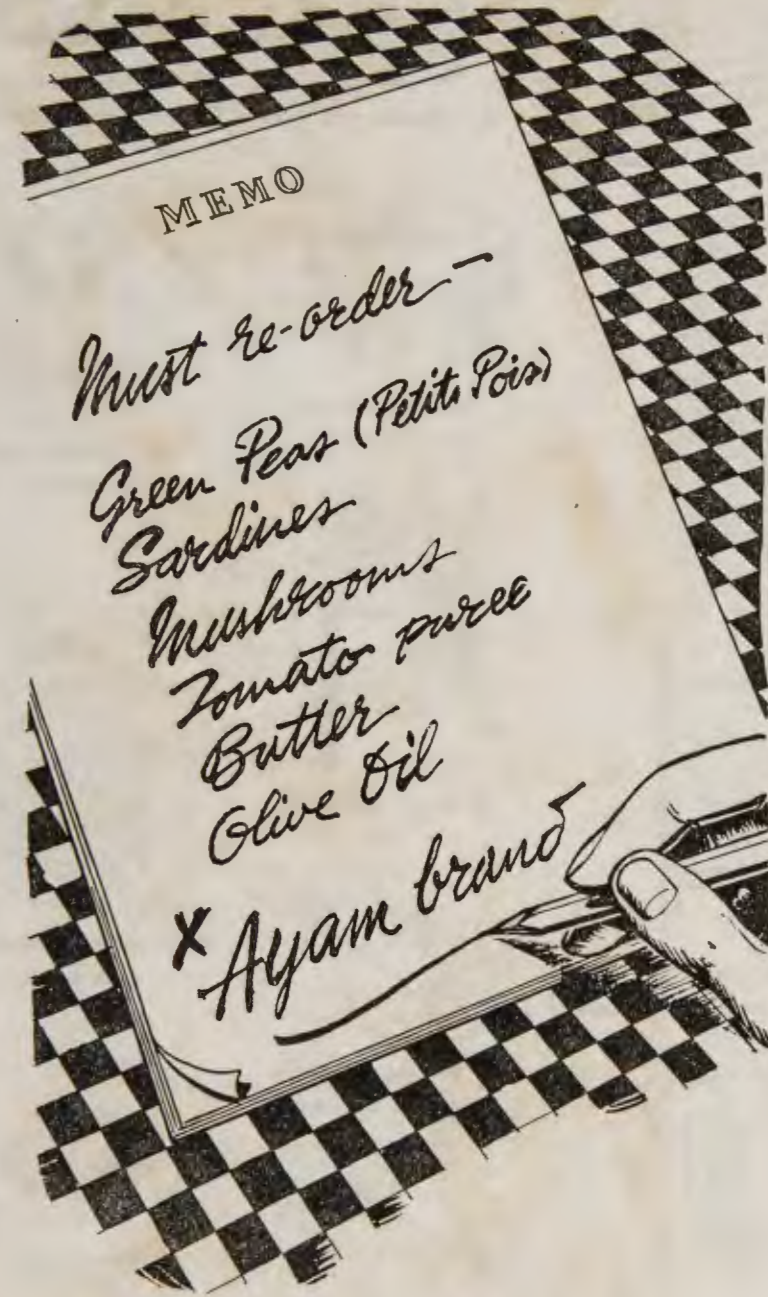 MEMO
Must re-order —
Green Peas (Petits Pois)
Sardines
Mushrooms
Tomato puree
Butter
Olive Oil
X Ayam brand